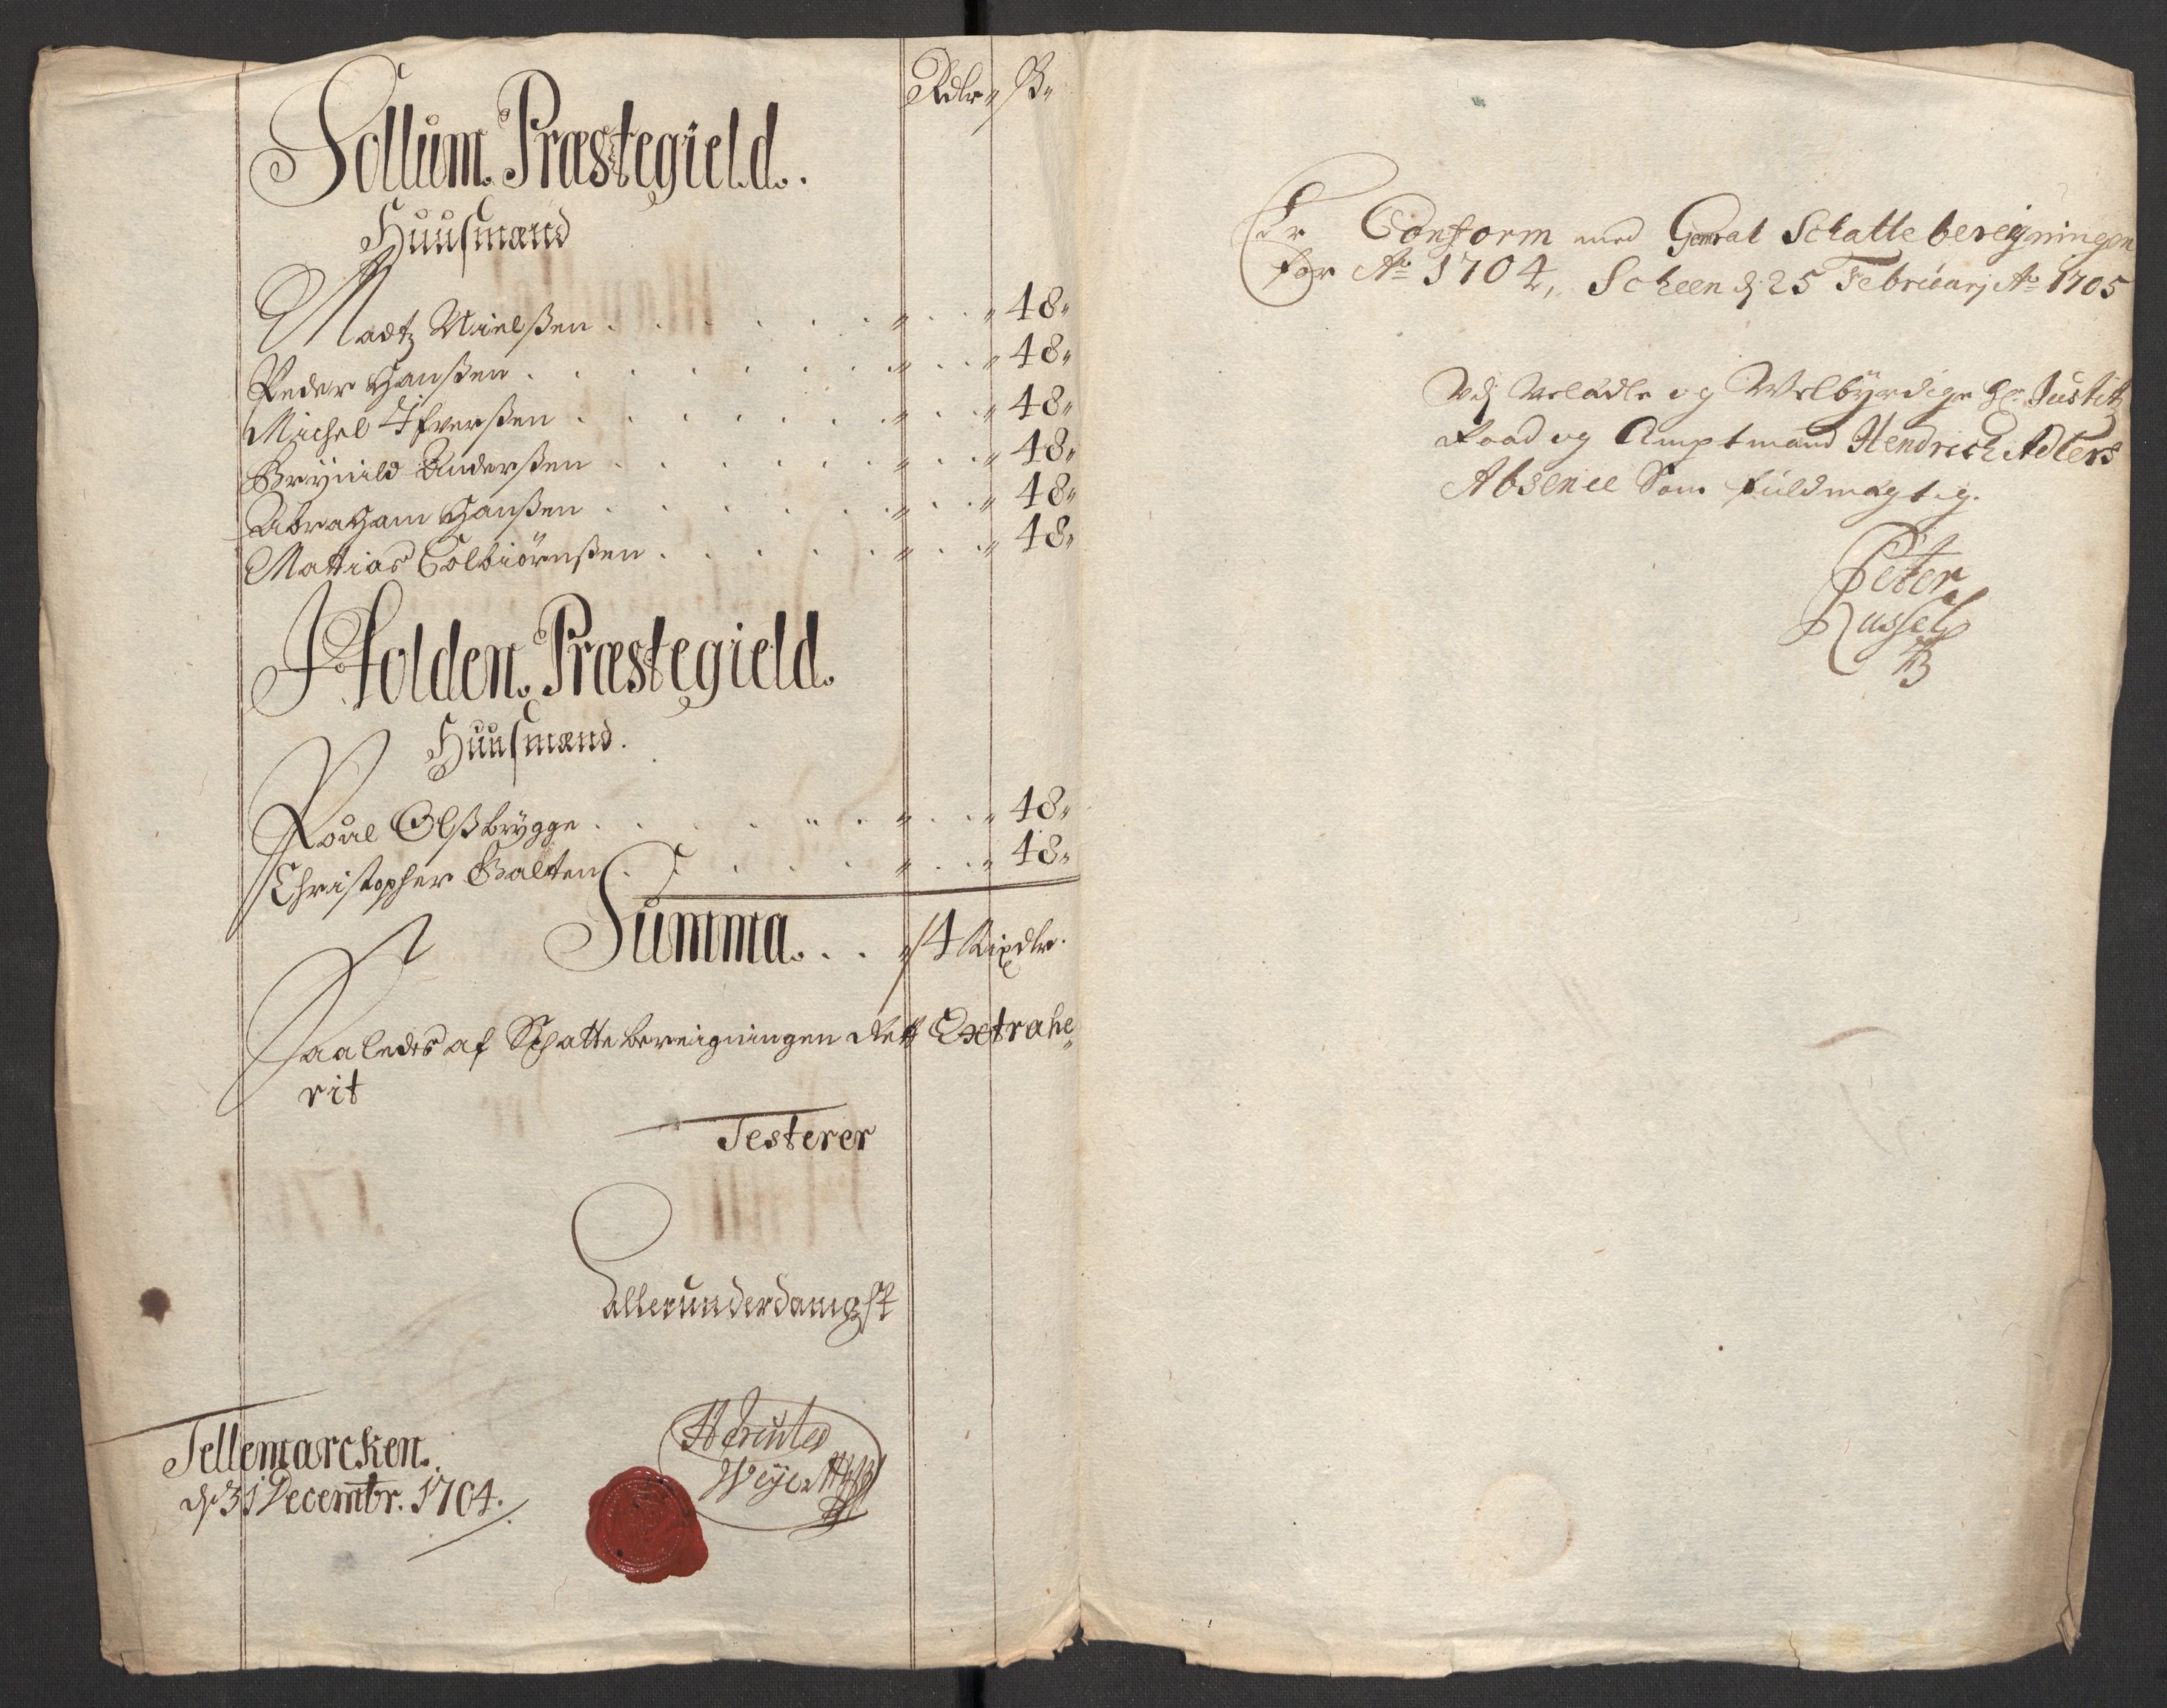 Rdlr„ ß„
Sollum. Præstegield.
Huusmænd
Madtz Nielßen . . . . . . „ . . „ 48„
Peder Hanßen . . . . . . . „ . . „ 48„
Michel Ifverßen . . . . . . „ . . „ 48„
Brynild Anderßen . . . . . . „ . . „ 48„
Abraham Hanßen . . . . . . „ . . „ 48„
Mattias Colbiörnßen . . . . . „ . . „ 48„
Holden. Præstegield.
Huusmænd.
Poüel Olßbrygge . . . . . . „ . . „ 48„
Christopher Balten . . . . . „ . . „ 48„
Summa. . . „ 4 Rixdlr.
Saaledes af Schatte bereigningen rett Extrahe„
rit
Testerer
Allerunderdanigst
Tellemarcken.
d. 31 Decembr. 1704.
Weyer
Er Conform med General Schatte beregningen
for Ao 1704, Scheen d. 25 Februarj Ao 1705
Udj Velædle og Velbÿrdige Hr. Justitz
Raad og Amptmand Hendrich Adlers
Absence Som fuldmægtig.
Peter
Russel